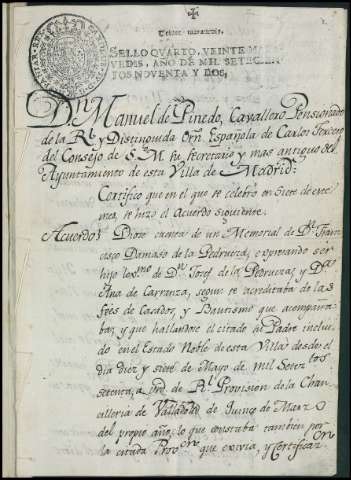 SELLO QVARTO, VEINTE MARA
VEDIS, AÑO DE MIL SETECIEN
TOS NOVENTA Y DOS,
Dn. Manuel de Pinedo, Cavallero Pensionado
de la Rl. y Distinguida Orn. Española de Carlos Tercero
del Consejo de S. M. su Secretario y mas antiguo del
Ayuntamiento de esta Villa de Madrid:
Certifico que en el que se celebró en siete de este
mes, se hizo el Acuerdo siguiente.
Acuerdo Diose cuenta de un Memorial de Dn. Fran
cisco Damaso de la Pedrueza, expresando ser
hijo lexmo. de Dn. Josef de la Pedrueza, y Da.
Ana de Carranza, segun se acreditaba de las
fees de Casados, y Bautismo que acompaña
ba; y que hallandose el citado su Padre inclui
do en el Estado Noble de esta Villa desde el
dia diez y siete de Mayo de mil Setetos
setenta, a de Rl. Provision de la Chan
cilleria de Valladolid de de Marzo
del propio año, lo que constaba tambien por
la citada Proon. que exivia, y Certificaon